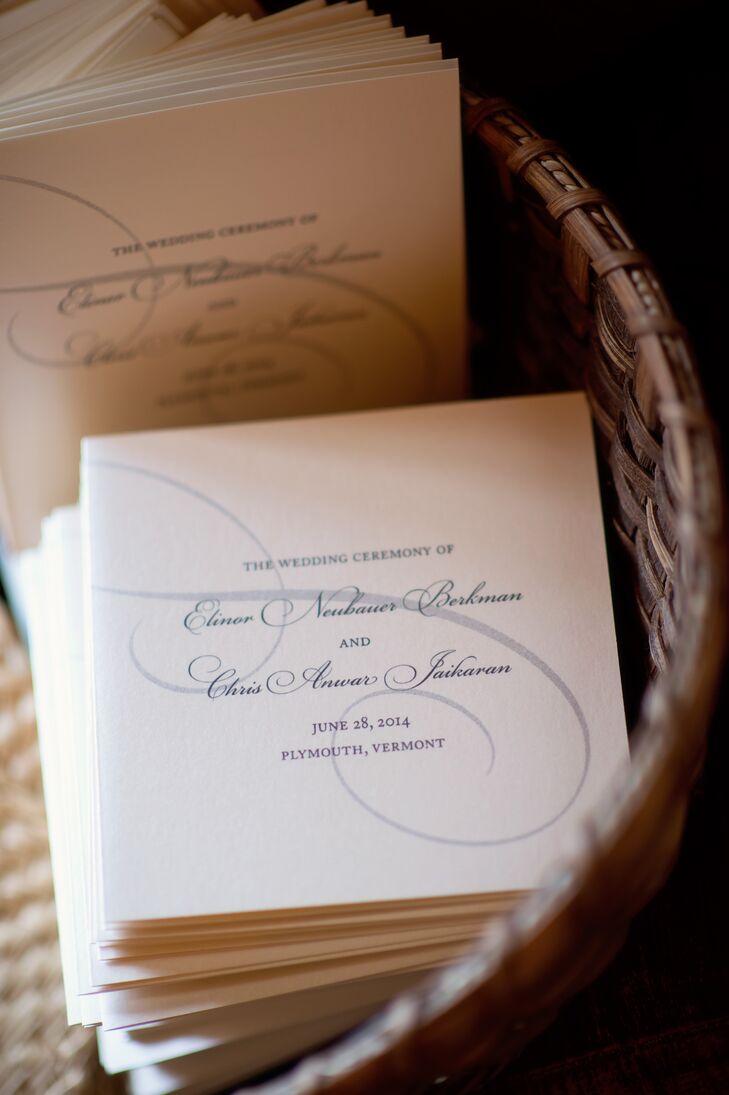 THE WEDDING CEREMONY OF
Elinor Neubauer Berkman
AND
Chris Anwar Jaikaran
THE WEDDING CEREMONY OF
Elinor Neubauer Berkman
AND
Chris Anwar Jaikaran
JUNE 28, 2014
PLYMOUTH, VERMONT